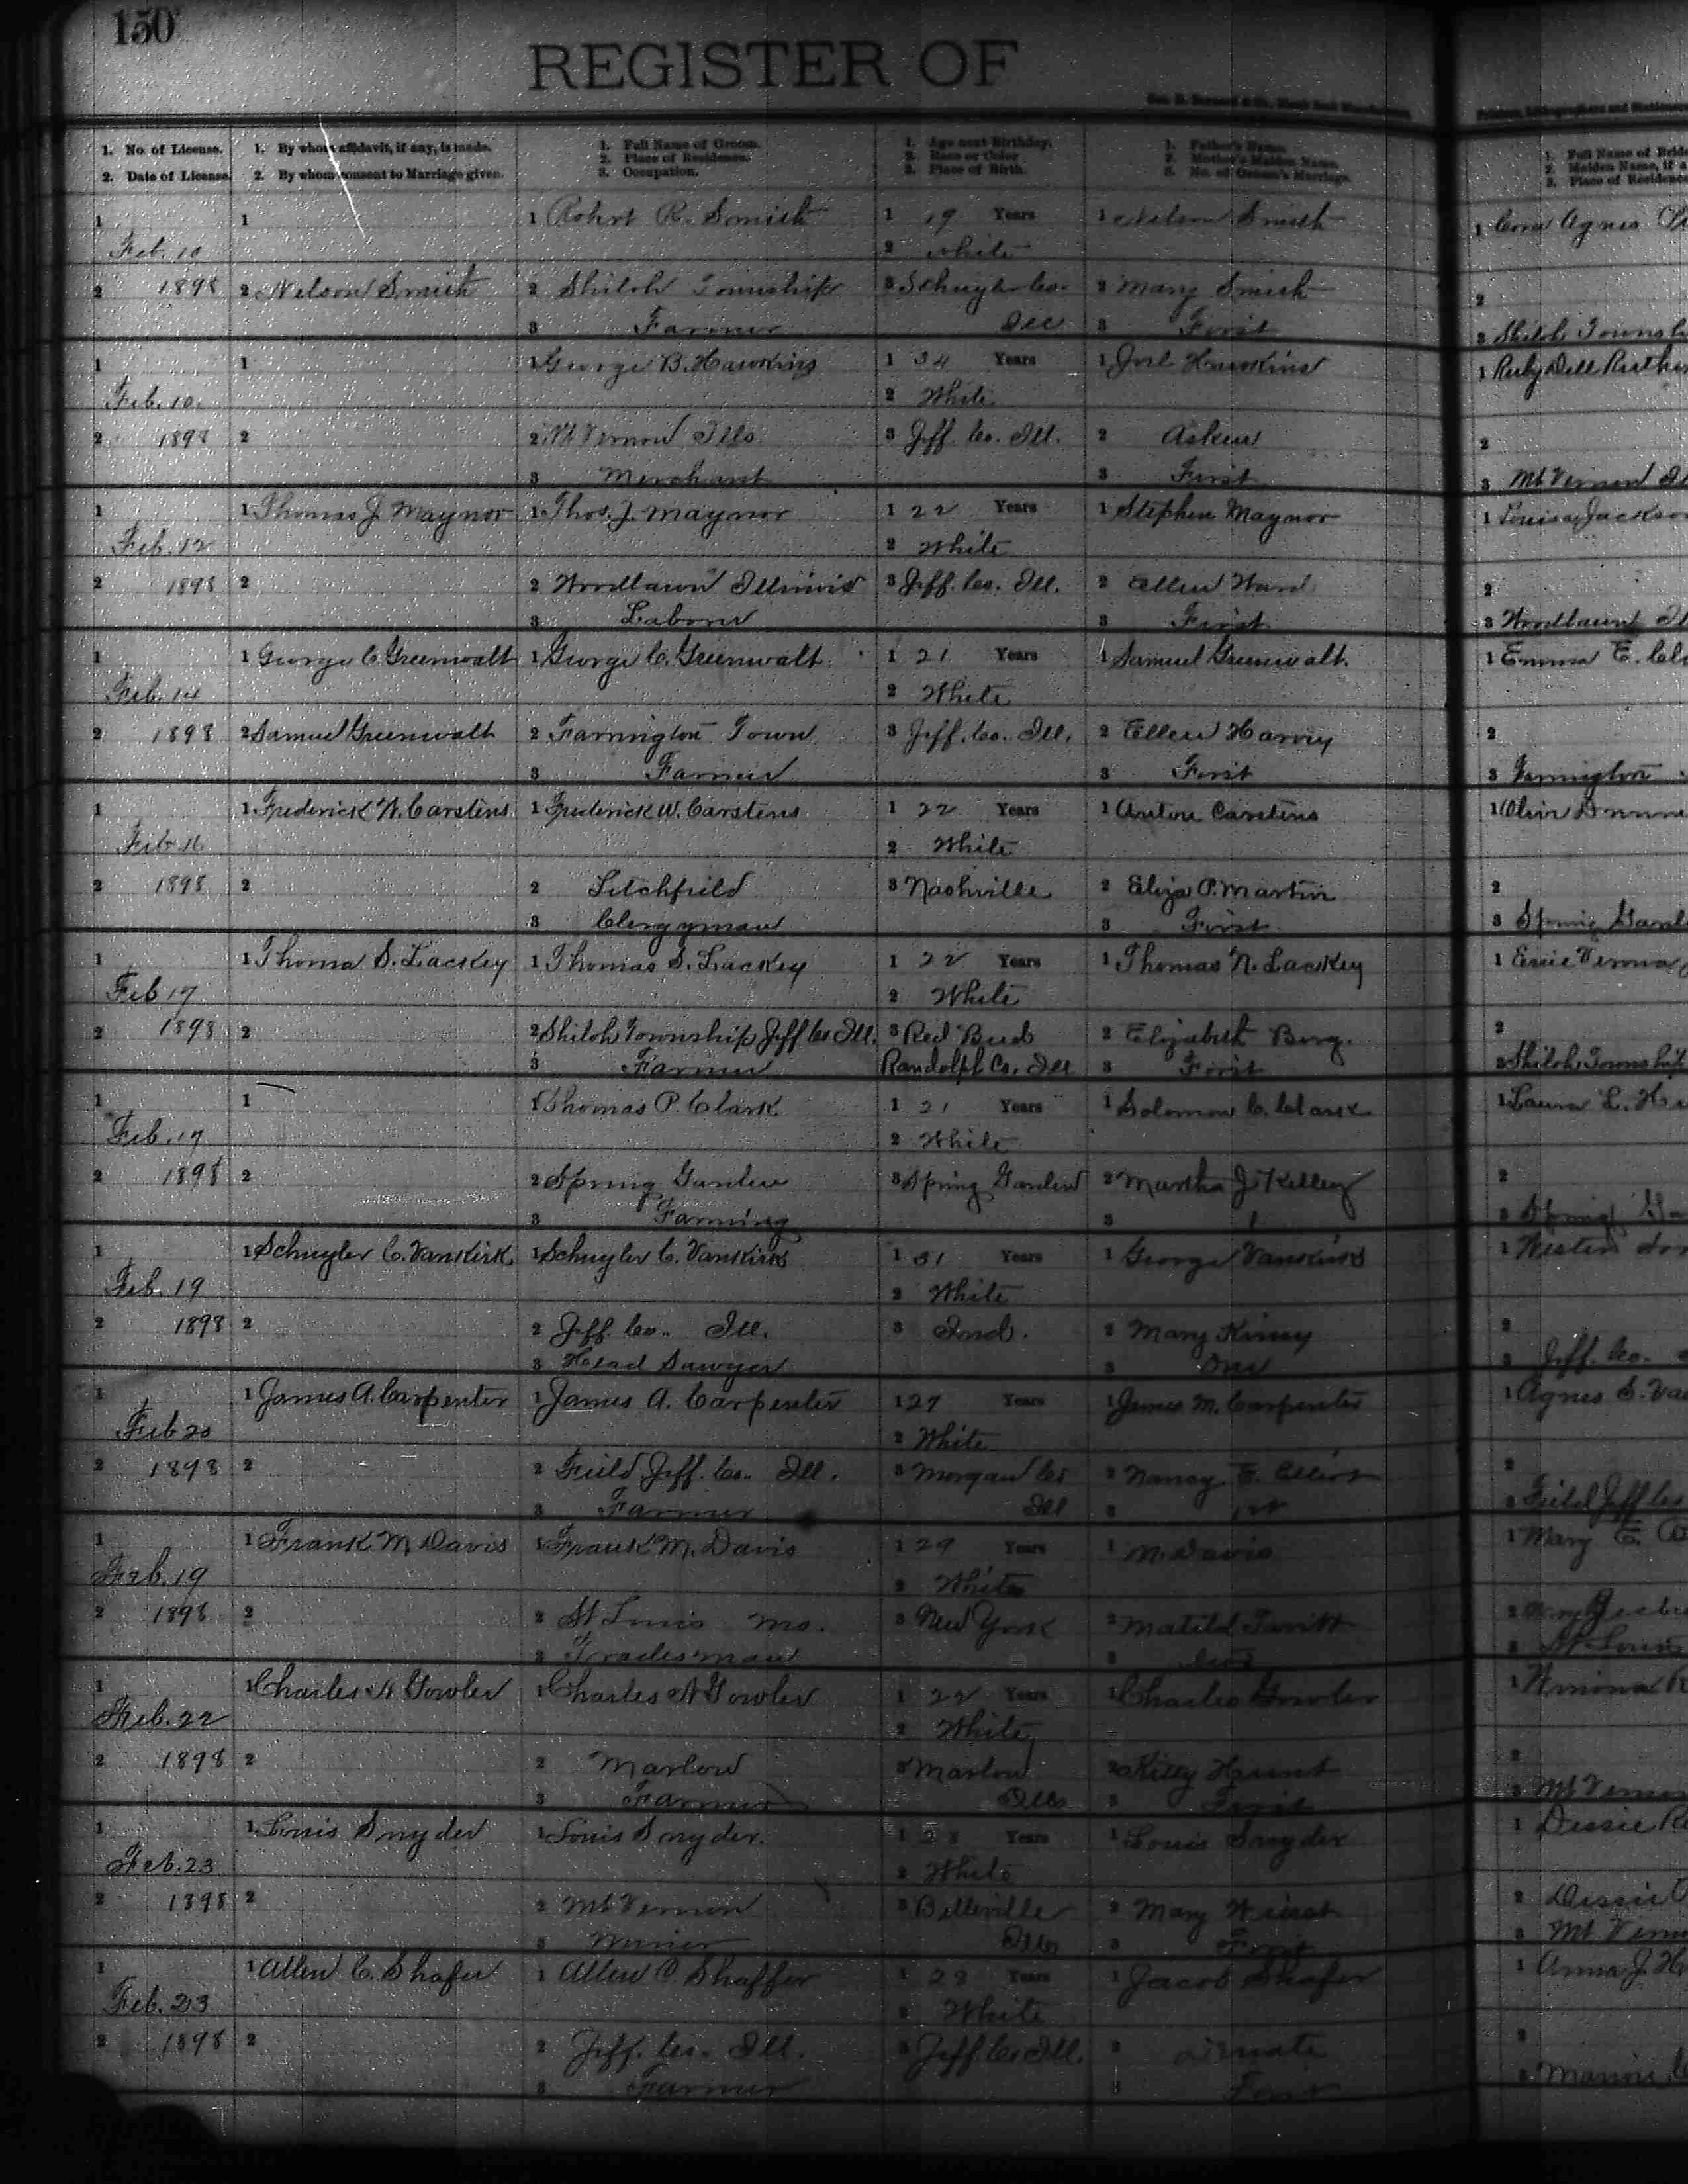 150
REGISTER OF
1. No. of License.
2. Date of License.
1. By whom affidavit, if any, is made.
2. By whom consent to Marriage given.
1. Full Name of Groom.
2. Place of Residence.
3. Occupation.
1. Age next Birthday.
2. Race or Color
3. Place of Birth.
1. Father's Name.
2. Mother's Maiden Name.
3. No. of Groom's Marriage.
1. Full Name of Bride
2. Maiden Name, if a
3. Place of Residence
1 1 1 Robert R. Smith 1 19 Years 1 Nelson Smith 1 Cora Agnes
Feb. 10 2 White
2 1898 2 Nelson Smith 2 Shiloh Township 3 Schuyler Co. 2 Mary Smith 2
3 Farmer Ill 3 First 3 Shiloh Townsh
1 1 1 George B. Hawkins 1 34 Years 1 Joel Hawkins 1 Ruby Dell
Feb. 10. 2 White
2 1898 2 2 Mt Vernon Ills 3 Jeff. Co. Ill. 2 Askew 2
3 Merchant 3 First 3 Mt Vernon Il
1 1 Thomas J Maynor 1 Thos. J. Maynor 1 22 Years 1 Stephen Maynor 1 Louisa Jackson
Feb. 12 2 White
2 1898 2 2 Woodlawn Illinois 3 Jeff. Co. Ill. 2 Ellen Ward 2
3 Laborer 3 First 3 Woodlawn Il
1 1 George C. Greenwalt 1 George C. Greenwalt 1 21 Years 1 Samuel Greenwalt. 1 Emma E. Cl
Feb. 14 2 White
2 1898 2 Samuel Greenwalt 2 Farrington Town 3 Jeff. Co. Ill. 2 Ellen Harvey 2
3 Farmer 3 First 3 Farrington
1 1 Frederick W. Carstens 1 Frederick W. Carstens 1 22 Years 1 Anton Carstens 1
Feb 16 2 White
2 1898 2 2 Litchfield 3 Nashville 2 Eliza P. Martin 2
3 Clergyman 3 First 3 Spring Gard
1 1 Thoma S. Lackey 1 Thomas S. Lackey 1 22 Years 1 Thomas N. Lackey 1
Feb 17 2 White
2 1898 2 2 Shiloh Township Jeff Co Ill. 3 Red Bud 2 Elizabeth Berg. 2
3 Farmer Randolph Co. Ill 3 First 3 Shiloh Township
1 1 1 Thomas P. Clark 1 21 Years 1 Solomon C. Clark 1 Laura L.
Feb. 17 2 White
2 1898 2 2 Spring Garden 3 Spring Garden 2 Martha J Kelley 2
3 Farming 3 1 3 Spring Ga
1 1 Schuyler C. Vankirk 1 Schuyler C. Vankirk 1 31 Years 1 George Vankirk 1
Feb. 19 2 White
2 1898 2 2 Jeff. Co. Ill. 3 Ind. 2 Mary Kinsey 2
3 Head Sawyer 3 One 3 Jeff. Co.
1 1 James A. Carpenter 1 James A. Carpenter 1 27 Years 1 James M. Carpenter 1 Agnes S. Va
Feb 20 2 White
2 1898 2 2 Field Jeff. Co. Ill. 3 Morgan Co 2 Nancy E. Elliot 2
3 Farmer Ill 3 1st 3 Field Jeff Co
1 1 Frank M. Davis 1 Frank M. Davis 1 29 Years 1 M. Davis 1 Mary E.
Feb. 19 2 White
2 1898 2 2 St Louis Mo. 3 New York 2 Matild 2
3 Tradesman 3 3 St Louis
1 1 Charles N Gowler 1 Charles N Gowler 1 22 Years 1 Charles Gowler 1 Winona R
Feb. 22 2 White
2 1898 2 2 Marlow 3 Marlow 2 2
3 Farmer Ills 3 First 3 Mt Vernon
1 1 Louis Snyder 1 Louis Snyder. 1 28 Years 1 Louis Snyder 1 Dessie
Feb. 23 2 White
2 1898 2 2 Mt Vernon 3 Belleville 2 Mary 2 Dessie
3 Ills 3 First 3 Mt Vern
1 1 Allen C. Shafer 1 Allen C. Shaffer 1 28 Years 1 Jacob Shafer 1 Anna J. H
Feb. 23 2 White
2 1898 2 2 Jeff. Co. Ill. 3 Jeff Co Ill. 2 2
3 Farmer 3 First 3 Marion